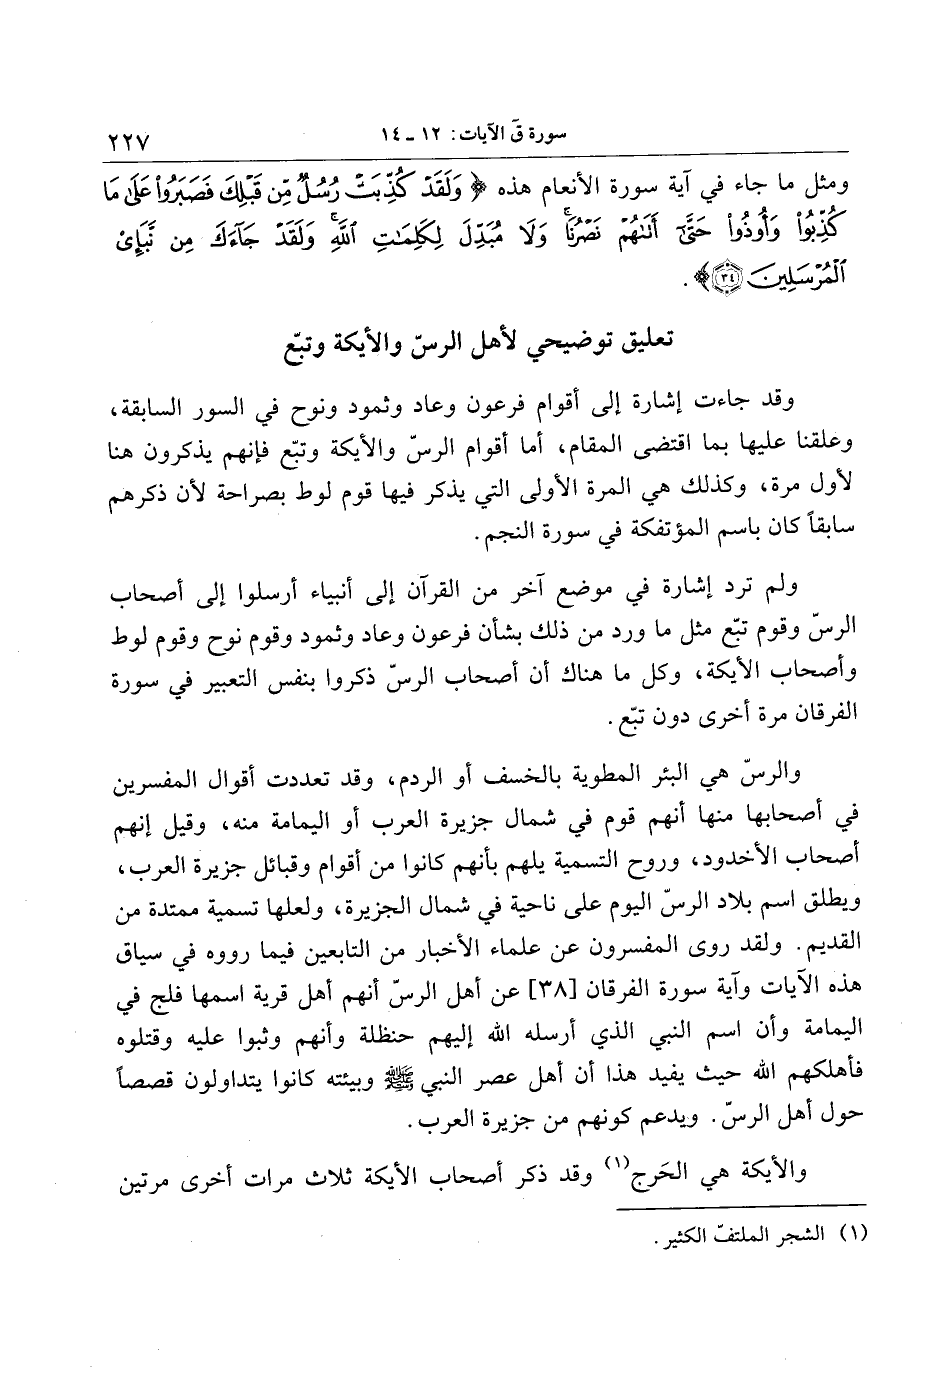 سورة قۤ الآيات: ١٢ ـ ١٤
٢٢٧
ومثل ما جاء في آية سورة الأنعام هذه ﴿ وَلَقَدْ كُذِّبَتْ رُسُلٌ مِّن قَبْلِكَ فَصَبَرُواْ عَلَىٰ مَا
كُذِّبُواْ وَأُوذُواْ حَتَّىٰٓ أَتَىٰهُمْ نَصْرُنَا ۚ وَلَا مُبَدِّلَ لِكَلِمَٰتِ ٱللَّهِ ۚ وَلَقَدْ جَآءَكَ مِن نَّبَإِىْ
ٱلْمُرْسَلِينَ ٣٤ ﴾ .
تعليق توضيحي لأهل الرسّ والأيكة وتبّع
وقد جاءت إشارة إلى أقوام فرعون وعاد وثمود ونوح في السور السابقة،
وعلقنا عليها بما اقتضى المقام، أما أقوام الرسّ والأيكة وتبّع فإنهم يذكرون هنا
لأول مرة، وكذلك هي المرة الأولى التي يذكر فيها قوم لوط بصراحة لأن ذكرهم
سابقاً كان باسم المؤتفكة في سورة النجم.
ولم ترد إشارة في موضع آخر من القرآن إلى أنبياء أرسلوا إلى أصحاب
الرسّ وقوم تبّع مثل ما ورد من ذلك بشأن فرعون وعاد وثمود وقوم نوح وقوم لوط
وأصحاب الأيكة، وكل ما هناك أن أصحاب الرسّ ذكروا بنفس التعبير في سورة
الفرقان مرة أخرى دون تبّع.
والرسّ هي البئر المطوية بالخسف أو الردم، وقد تعددت أقوال المفسرين
في أصحابها منها أنهم قوم في شمال جزيرة العرب أو اليمامة منه، وقيل إنهم
أصحاب الأخدود، وروح التسمية يلهم بأنهم كانوا من أقوام وقبائل جزيرة العرب،
ويطلق اسم بلاد الرسّ اليوم على ناحية في شمال الجزيرة، ولعلها تسمية ممتدة من
القديم. ولقد روى المفسرون عن علماء الأخبار من التابعين فيما رووه في سياق
هذه الآيات وآية سورة الفرقان [٣٨] عن أهل الرسّ أنهم أهل قرية اسمها فلج في
اليمامة وأن اسم النبي الذي أرسله الله إليهم حنظلة وأنهم وثبوا عليه وقتلوه
فأهلكهم الله حيث يفيد هذا أن أهل عصر النبي ﷺ وبيئته كانوا يتداولون قصصاً
حول أهل الرسّ. ويدعم كونهم من جزيرة العرب.
والأيكة هي الحَرج(١) وقد ذكر أصحاب الأيكة ثلاث مرات أخرى مرتين
(١) الشجر الملتفّ الكثير.